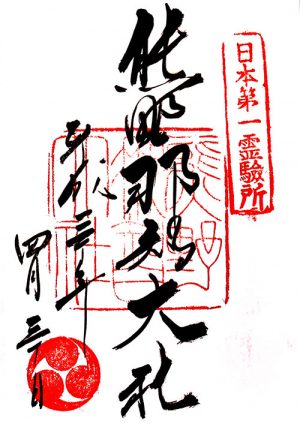 日本第一霊驗所
熊野那智大社
平成三年
四月三日